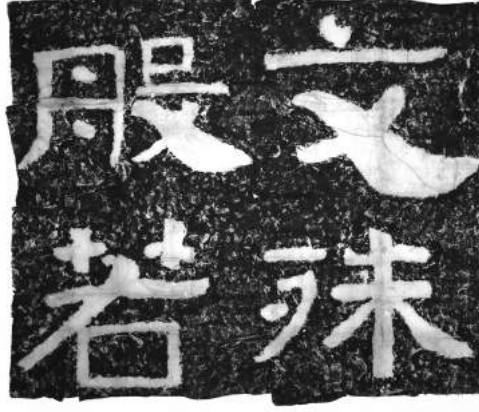 文殊
般若